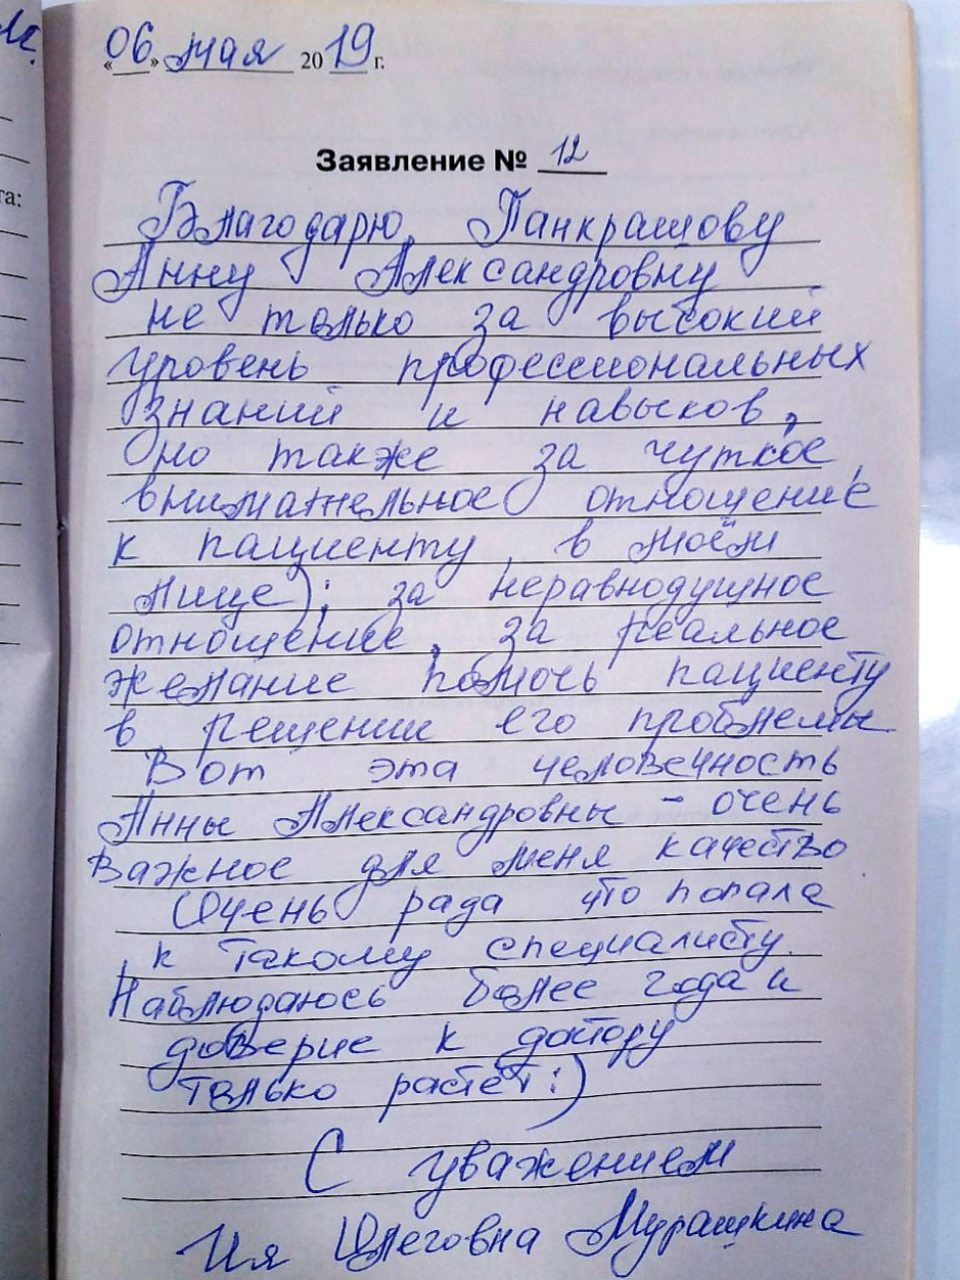 «06» мая 2019 г.
Заявление № 12
Благодарю Панкрашову
Анну Александровну
не только за высокий
уровень профессиональных
знаний и навыков,
но также за чуткое,
внимательное отношение
к пациенту в моём
лице); за неравнодушное
отношение, за реальное
желание помочь пациенту
в решении его проблемы
Вот эта человечность
Анны Александровны - очень
важное для меня качество
Очень рада что попала
к такому специалисту.
Наблюдаюсь более года и
доверие к доктору
только растёт :)
С уважением
Ия Олеговна Мурашкина
та: